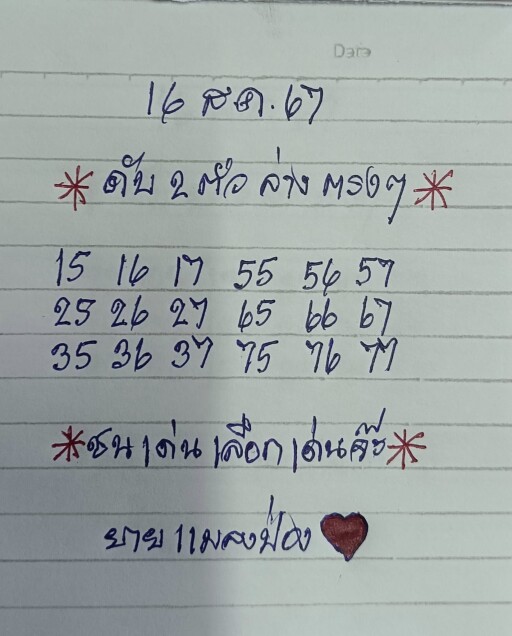 Date
16 สค. 67
* ดับ 2 ตัว ล่าง ตรงๆ *
15 16 17 55 56 57
25 26 27 65 66 67
35 36 37 75 76 77
*ชน เด่น เลือก เด่นจ๊ะ*
ยาย แมลงป่อง